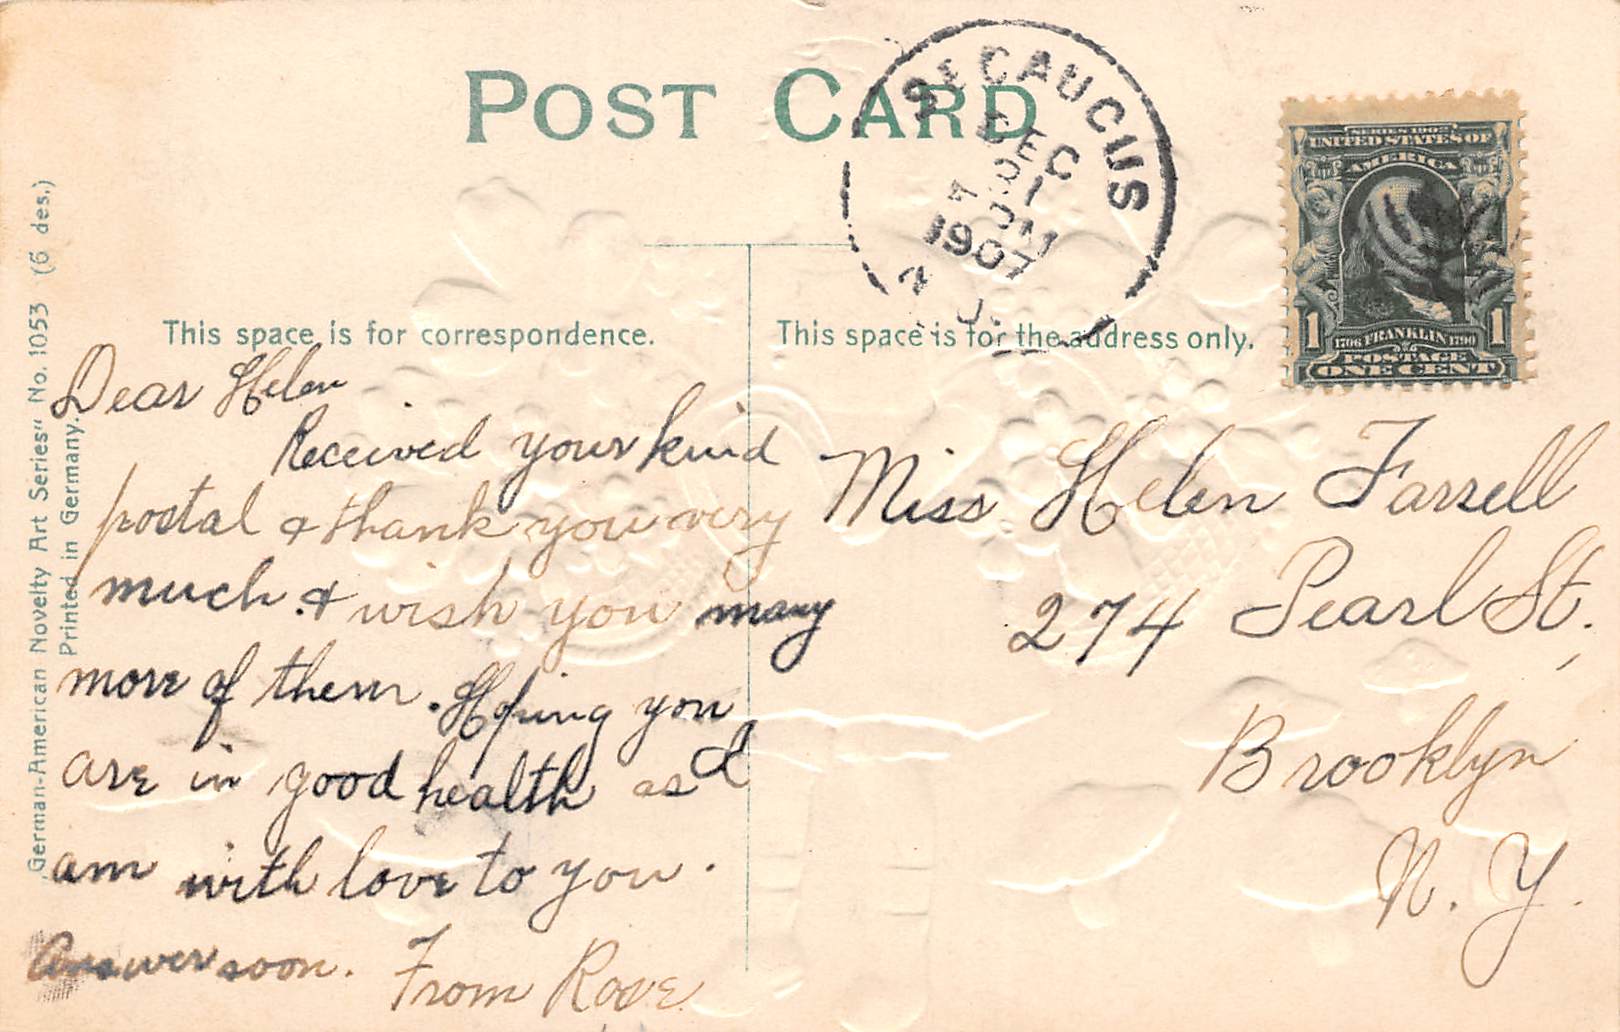 POST CARD
SECAUCUS
DEC
1907
N. J.
SERIES 1902
UNITED STATES OF
AMERICA
1706 FRANKLIN 1790
1 1
POSTAGE
ONE CENT
This space is for correspondence.
This space is for the address only.
„German-American Novelty Art Series" No. 1053 (6 des.)
Printed in Germany.
Dear Helen
Received your kind
postal & thank you very
much. & wish you many
more of them. Hoping you
are in good health as I
am with love to you.
Answer soon. From Rose
Miss Helen Farrell
274 Pearl St.,
Brooklyn
N. Y.